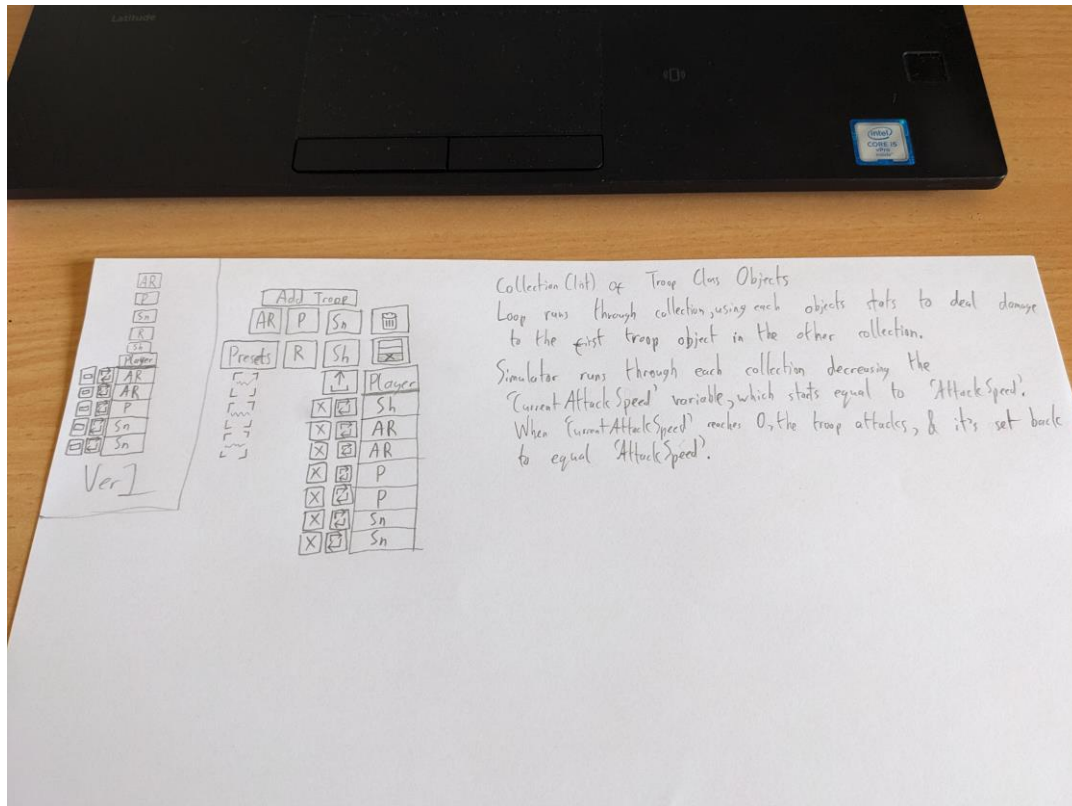 Latitude
intel
CORE i5
vPro
AR
P
Sn
R
Sh
Player
AR
AR
P
Sn
Sn
Ver 1
Add Troop
AR P Sn
Presets R Sh
Player
Sh
AR
AR
P
P
Sn
Sn
Collection (list) of Troop Class Objects
Loop runs through collection, using each objects stats to deal damage
to the first troop object in the other collection.
Simulator runs through each collection decreasing the
'CurrentAttackSpeed' variable, which starts equal to 'AttackSpeed'.
When 'CurrentAttackSpeed' reaches 0, the troop attacks, & it's set back
to equal 'AttackSpeed'.